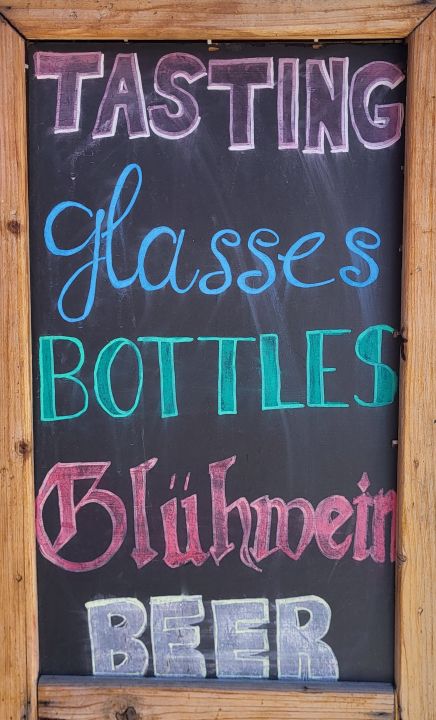 TASTING
glasses
BOTTLES
Glühwein
BEER